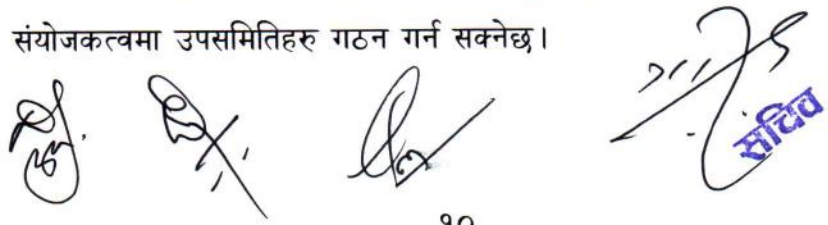 संयोजकत्वमा उपसमितिहरु गठन गर्न सक्नेछ।
सचिव
१०